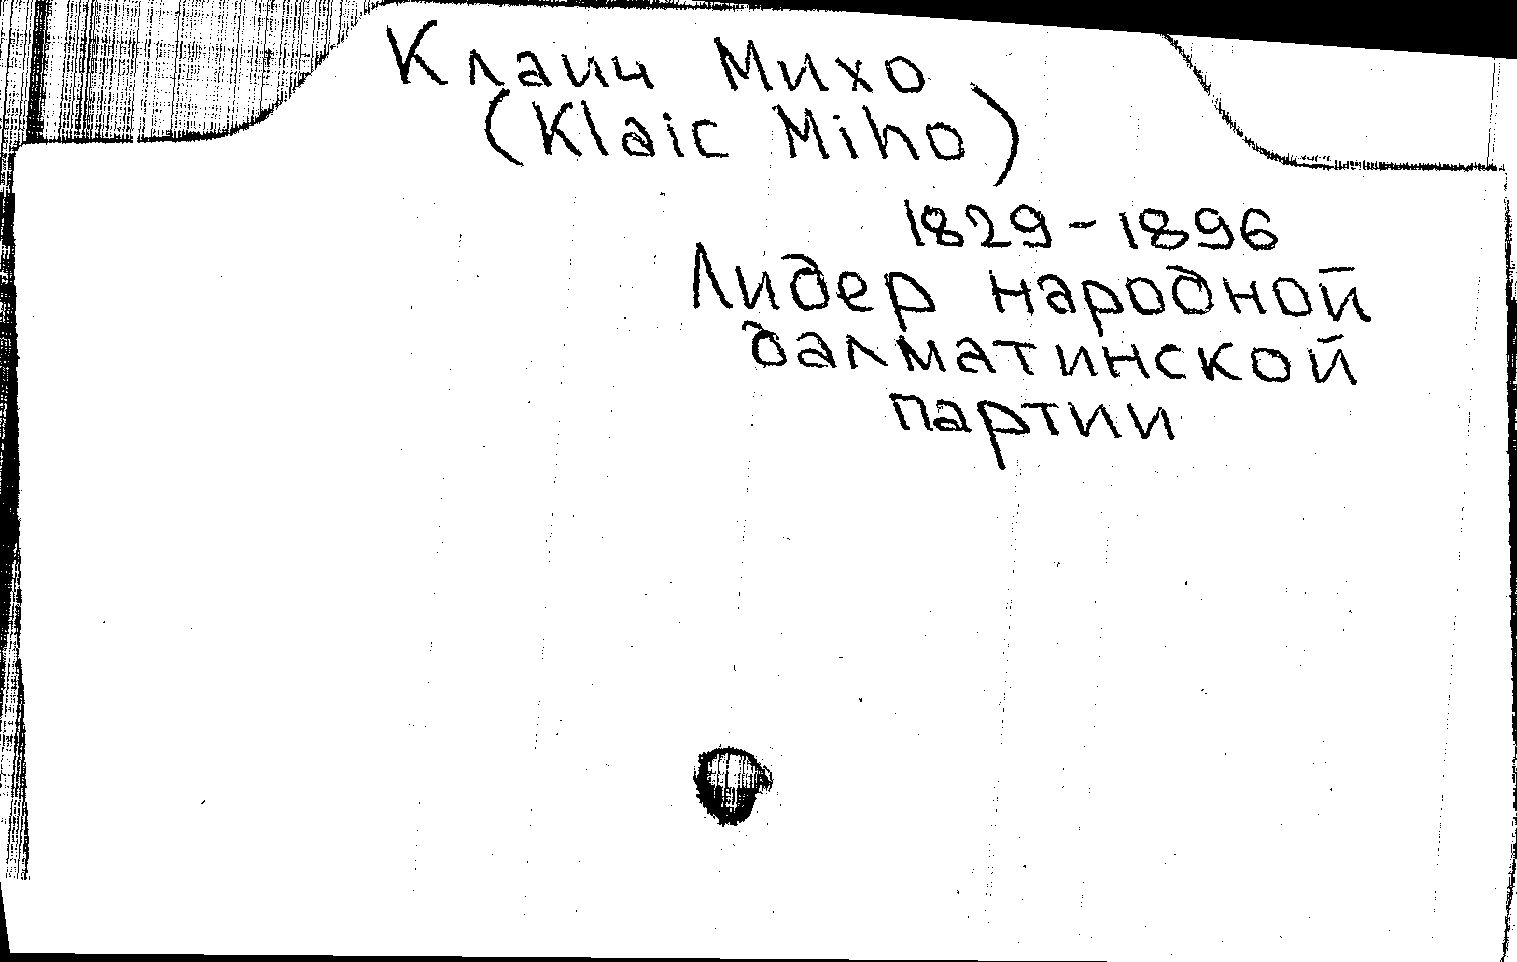 Клаич Михо
(Klaic Miho)
1829-1896
Лидер народной
далматинской
партии